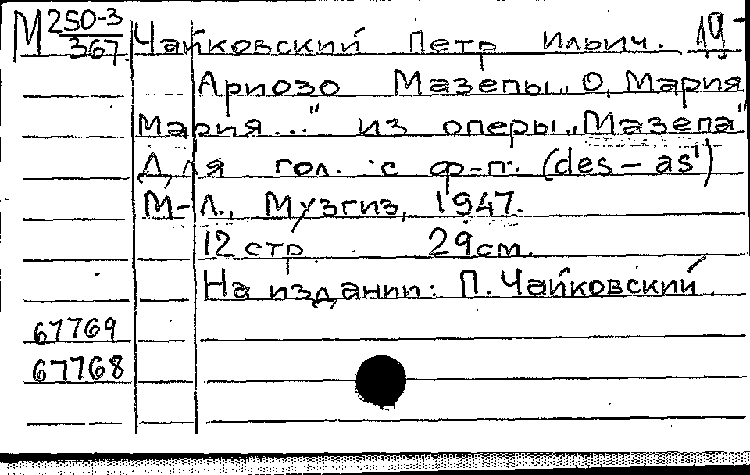 М 250-3
367 Чайковский Петр Ильич. 19
Ариозо Мазепы „О, Мария
Мария..." из оперы „Мазепа"
Для гол. с ф-п. (des – as¹)
М-Л., Музгиз, 1947.
12 стр 29 см.
На издании: П. Чайковский.
67769
67768